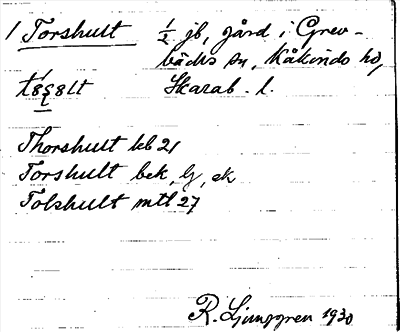 1 Torshult ½ jb, gård i Grev-
bäcks sn, Kåkinds hd,
Skarab. l.
Thorshult kb 21
Torshult bek, lj, ek
Tolshult mtl 27
R. Ljunggren 1930